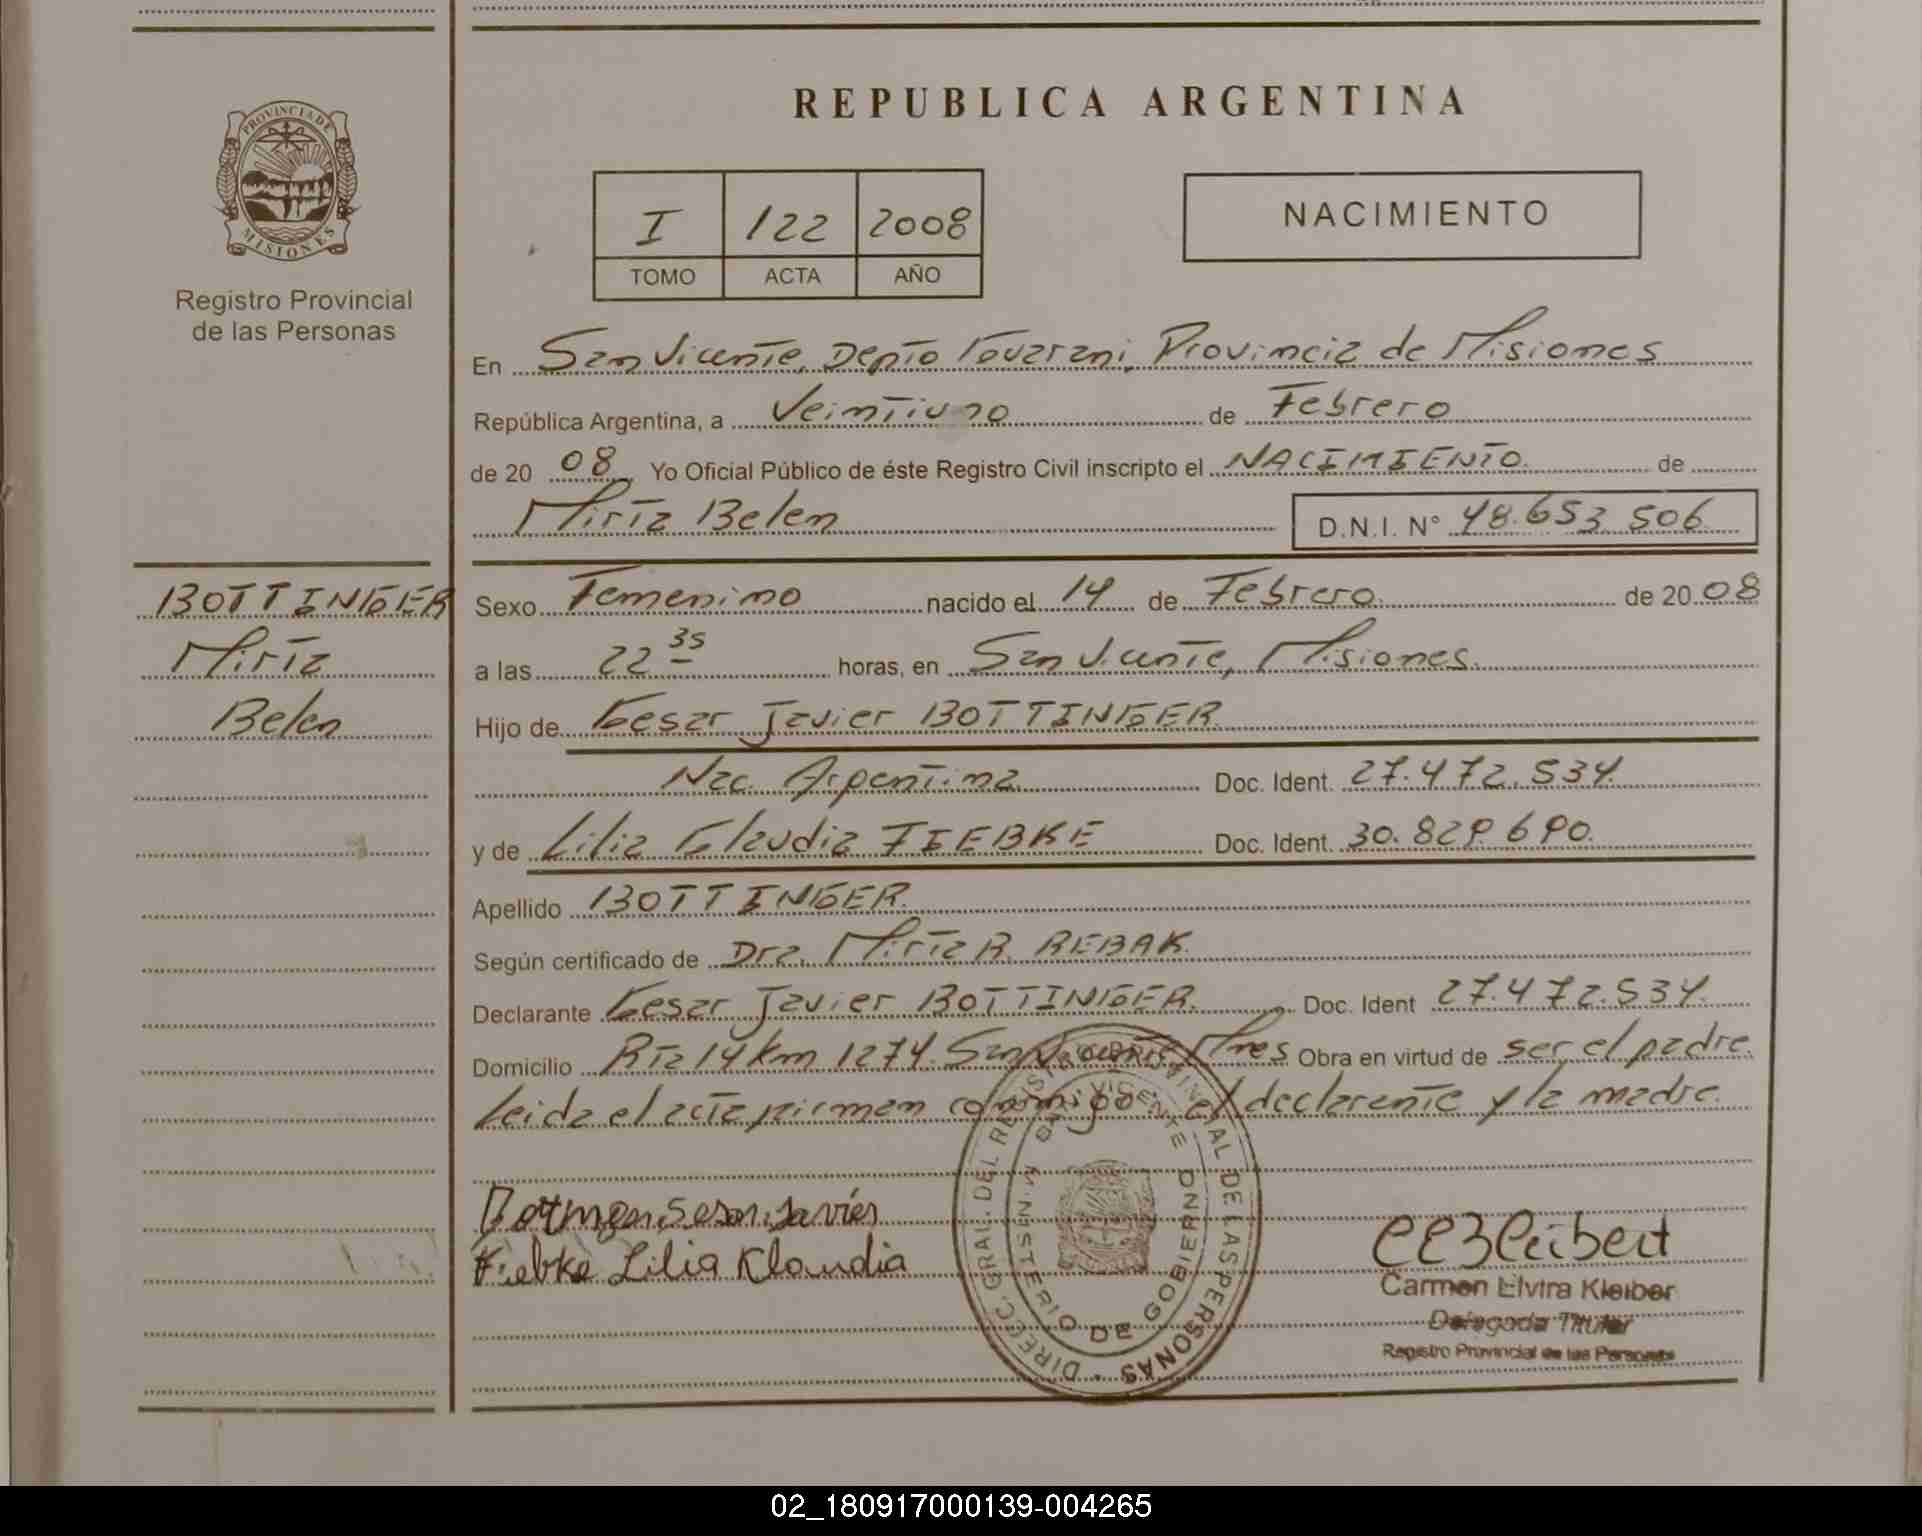 PROVINCIA DE
MISIONES
Registro Provincial
de las Personas
REPUBLICA ARGENTINA
I 122 2008
TOMO ACTA AÑO
NACIMIENTO
En San Vicente, Depto Guarani, Provincia de Misiones
República Argentina, a Veintiuno de Febrero
de 20 08 Yo Oficial Público de éste Registro Civil inscripto el NACIMIENTO de
Mirta Belen D.N.I. N° 48.653 506
BOTTINGER
Mirta
Belen
Sexo Femenino nacido el 14 de Febrero de 20 08
a las 22 35 horas, en San Vicente, Misiones.
Hijo de Cesar Javier BOTTINGER
Nac. Argentina Doc. Ident. 27.472.534
y de Lilia Claudia FIEBKE Doc. Ident. 30.829.690.
Apellido BOTTINGER.
Según certificado de Dra. Mirta R. REBAK.
Declarante Cesar Javier BOTTINGER. Doc. Ident 27.472.534.
Domicilio Rta 14 Km 1274. San Vicente Mnes Obra en virtud de ser el padre.
Leida el acta firman conmigo el declarante y la madre.
Fiebke Lilia Klaudia
DIREC. GRAL. DEL REGISTRO PROVINCIAL DE LAS PERSONAS
MINISTERIO DE GOBIERNO
Carmen Elvira Kleiber
Delegada Titular
Registro Provincial de las Personas
02_180917000139-004265